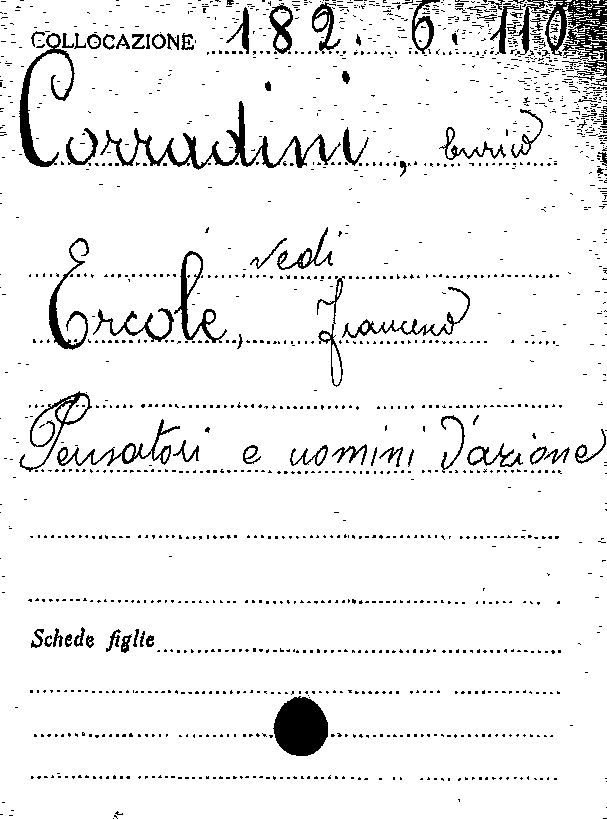 COLLOCAZIONE 182. 6. 110
Corradini, Enrico
vedi
Ercole, Francesco
Pensatori e uomini d'azione
Schede figlie